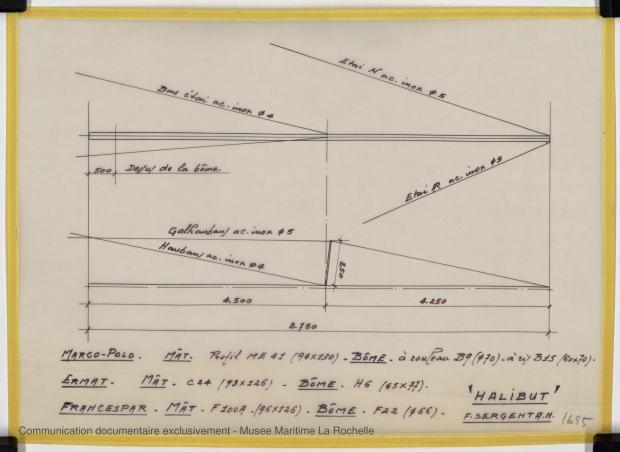 Etai N ac. inox φ5
Bas étai ac. inox φ4
500
Dessus de la bôme
Etai R ac. inox φ5
Galhaubans ac. inox φ5
Haubans ac. inox φ4
850
4.500
4.250
8.750
MARCO-POLO. MÂT. Profil ME 41 (94x130) - BÔME. à rouleau B9 (φ70) - à ris B15 (60x70).
ERMAT. MÂT. C24 (93x126) - BÔME. H6 (55x77).
FRANCESPAR. MÂT. F100A. (96x126) - BÔME. F22 (φ66).
"HALIBUT"
F. SERGENT A.N.
1695
Communication documentaire exclusivement - Musee Maritime La Rochelle